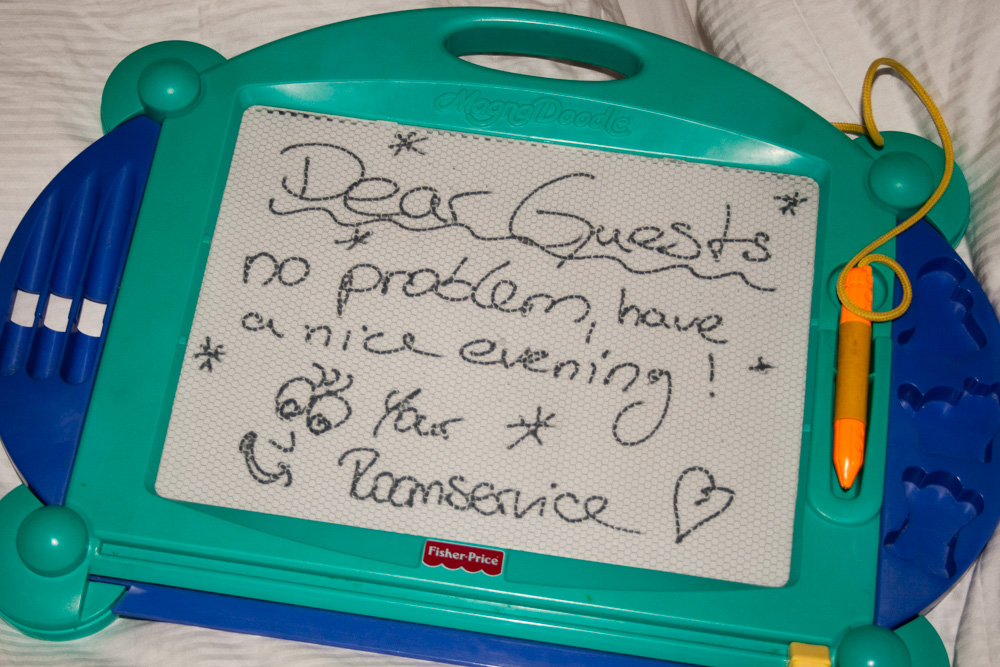 Magna Doodle
Dear Guests
no problem, have
a nice evening !
Your
Roomservice
Fisher-Price